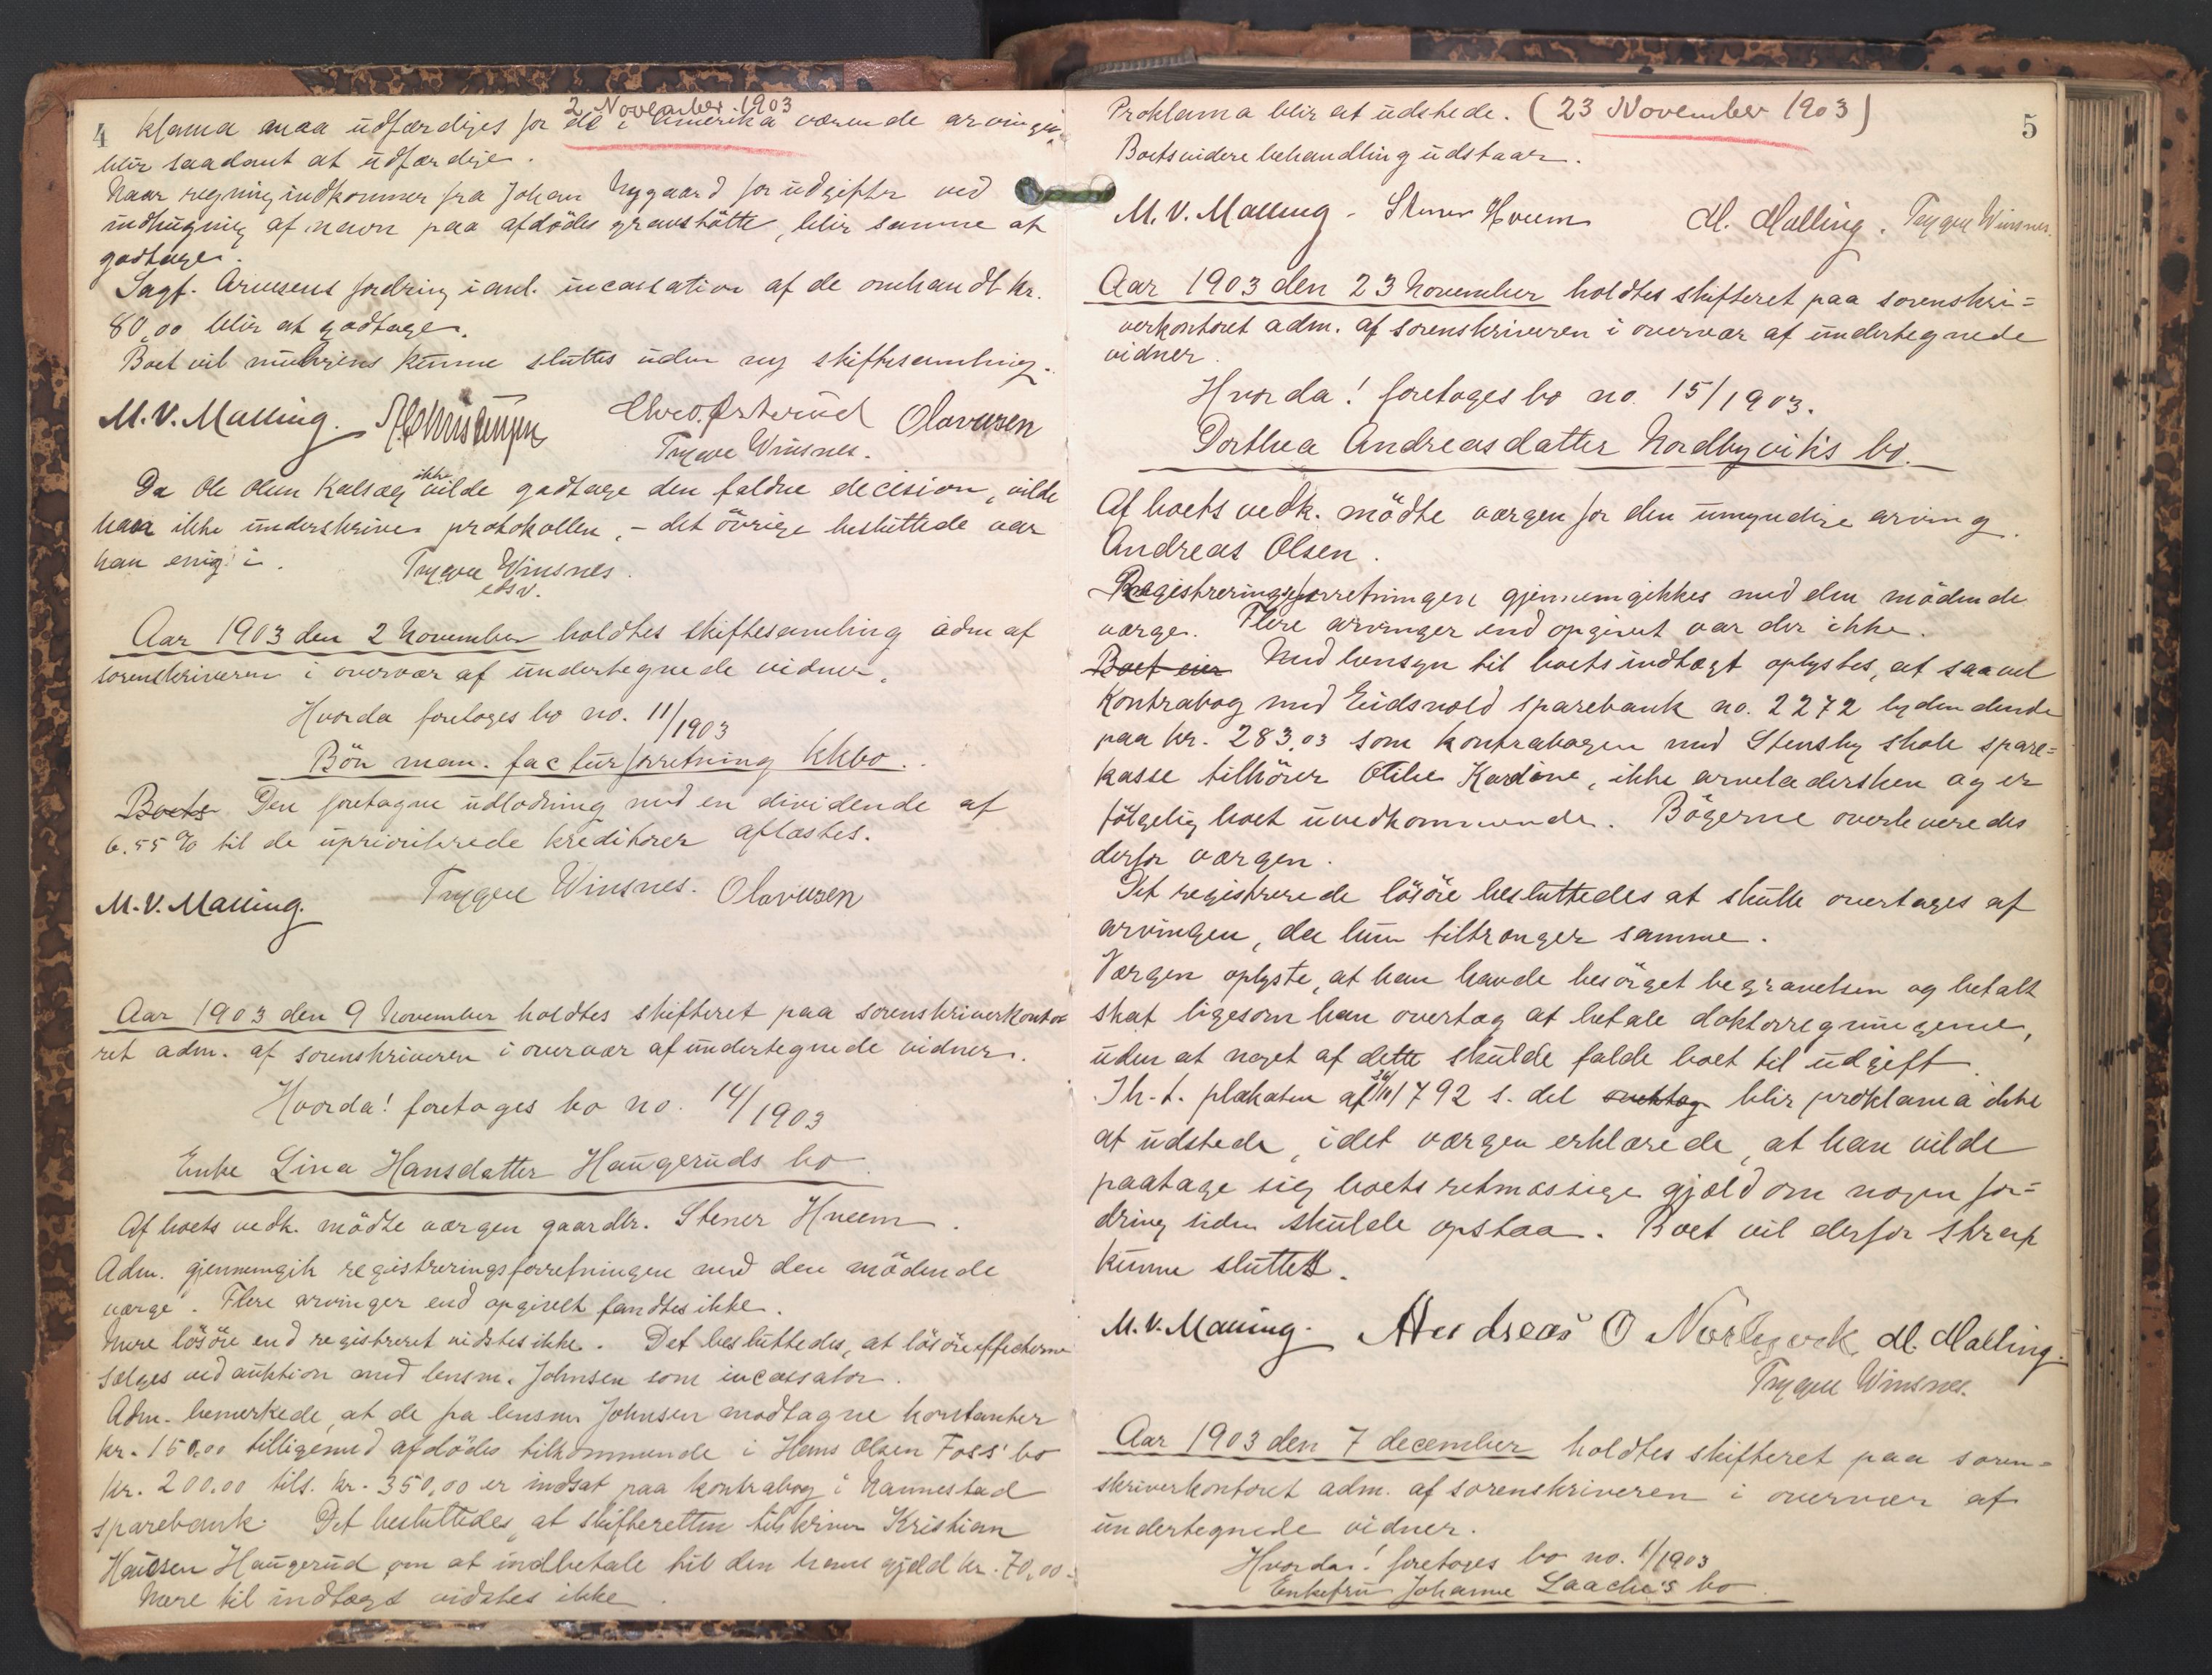 4
2 November 1903
klama maa udfærdiges for de i Amerika værende arvinger,
blir saadant at udfærdige.
Naar regning indkommer fra Johan Nygaard for udgifter ved
indhugning af navn paa afdödes gravstötte, blir samme at
godtage.
Sagf. Arnesens fordring i anl. incassation af de omhandlt kr.
80,00 blir at godtage.
Boet vil muligens kunne sluttes uden ny skiftesamling.
M.V. Malling. Chr. O. Østerud Olavesen
Trygve Winsnes.
Da Ole Olsen Kalsæg ikke vilde godtage den faldne decision, vilde
han ikke underskrive protokollen, - det övrige besluttede var
han enig i. Trygve Winsnes.
Aar 1903 den 2 November holdtes skiftesamling adm af
sorenskriveren i overvær af undertegnede vidner.
Hvorda foretages bo no. 11/1903
Bön man. facturforretning kkbo.
Boets Den foretagne udlodning med en dividende af
6.55 % til de uprioriterede kreditorer aflæstes.
M.V. Malling. Trygve Winsnes. Olavesen
Aar 1903 den 9 November holdtes skifteret paa sorenskriverkonto
ret adm. af sorenskriveren i overvær af undertegnede vidner.
Hvorda! foretages bo no. 14/1903
Enke Lina Hansdatter Haugeruds bo.
Af boets vedk. mödte værgen gaardbr. Stener Hveem.
Adm. gjennemgik registreringsforretningen med den mödende
værge. Flere arvinger end opgivelt fandtes ikke.
Mere lösöre end registreret vidstes ikke. Det besluttedes, at lösöreeffecterne
sælges ved auktion med lensm. Johnsen som incassator.
Adm. bemerkede, at de fra lensm. Johnsen modtagne kontanter
kr. 150,00 tilligemed afdödes tilkommende i Hans Olsen Foss' bo
kr. 200.00 tils. kr. 350,00 er indsat paa kontrabog i Nannestad
sparebank. Det besluttedes, at skifteretten tilskriver Kristian
Hansen Haugerud om at indbetale til den hans gjæld kr. 70,00.
Mere til indtægt vidstes ikke.
5
Proklama blir at udstede. (23 November 1903)
Boets videre behandling udstaar.
M.V. Malling - Stener Hveem M. Malling. Trygve Winsnes.
Aar 1903 den 23 November holdtes skifteret paa sorenskri=
verkontoret adm. af sorenskriveren i overvær af undertegnede
vidner.
Hvorda! foretages bo no. 15/1903.
Dorthea Andreasdatter Nordbyviks bo.
Af boets vedk. mödte værgen for den umyndige arving.
Andreas Olsen.
Registreringsforretningen gjennemgikkes med den mödende
værge. Flere arvinger end opgivet var der ikke.
Boet eier Med hensyn til boets indtægt oplystes, at saavel
kontrabog med Eidsvold sparebank no. 2272 lydendende
paa kr. 283,03 som kontrabogen med Stensby skole spare=
kasse tilhörer Otilie Karoline, ikke arveladersken og er
fölgelig boet uvedkommende. Bögerne overleveredes
derfor værgen.
Det registrerede lösöre besluttedes at skulle overtages af
arvingen, da hun tiltrænger samme.
Værgen oplyste, at han havde besörget begravelsen og betalt
skat ligesom han overtog at betale doktorregningerne,
uden at noget af dette skulde falde boet til udgift.
Ih. t. plakaten af 26/10 1792 s. del blir proklama ikke
at udstede, idet værgen erklærede, at han vilde
paatage sig boets retmæssige gjæld om nogen for=
dring siden skulde opstaa. Boet vil derfor strax
kunne sluttes.
M.V. Malling. Andreas O Norbyvek M. Malling.
Trygve Winsnes.
Aar 1903 den 7 december holdtes skifteret paa soren=
skriverkontoret adm. af sorenskriveren i overvær af
undertegnede vidner.
Hvorda! foretages bo no. 1/1903
Enkefru Johanne Laache's bo.